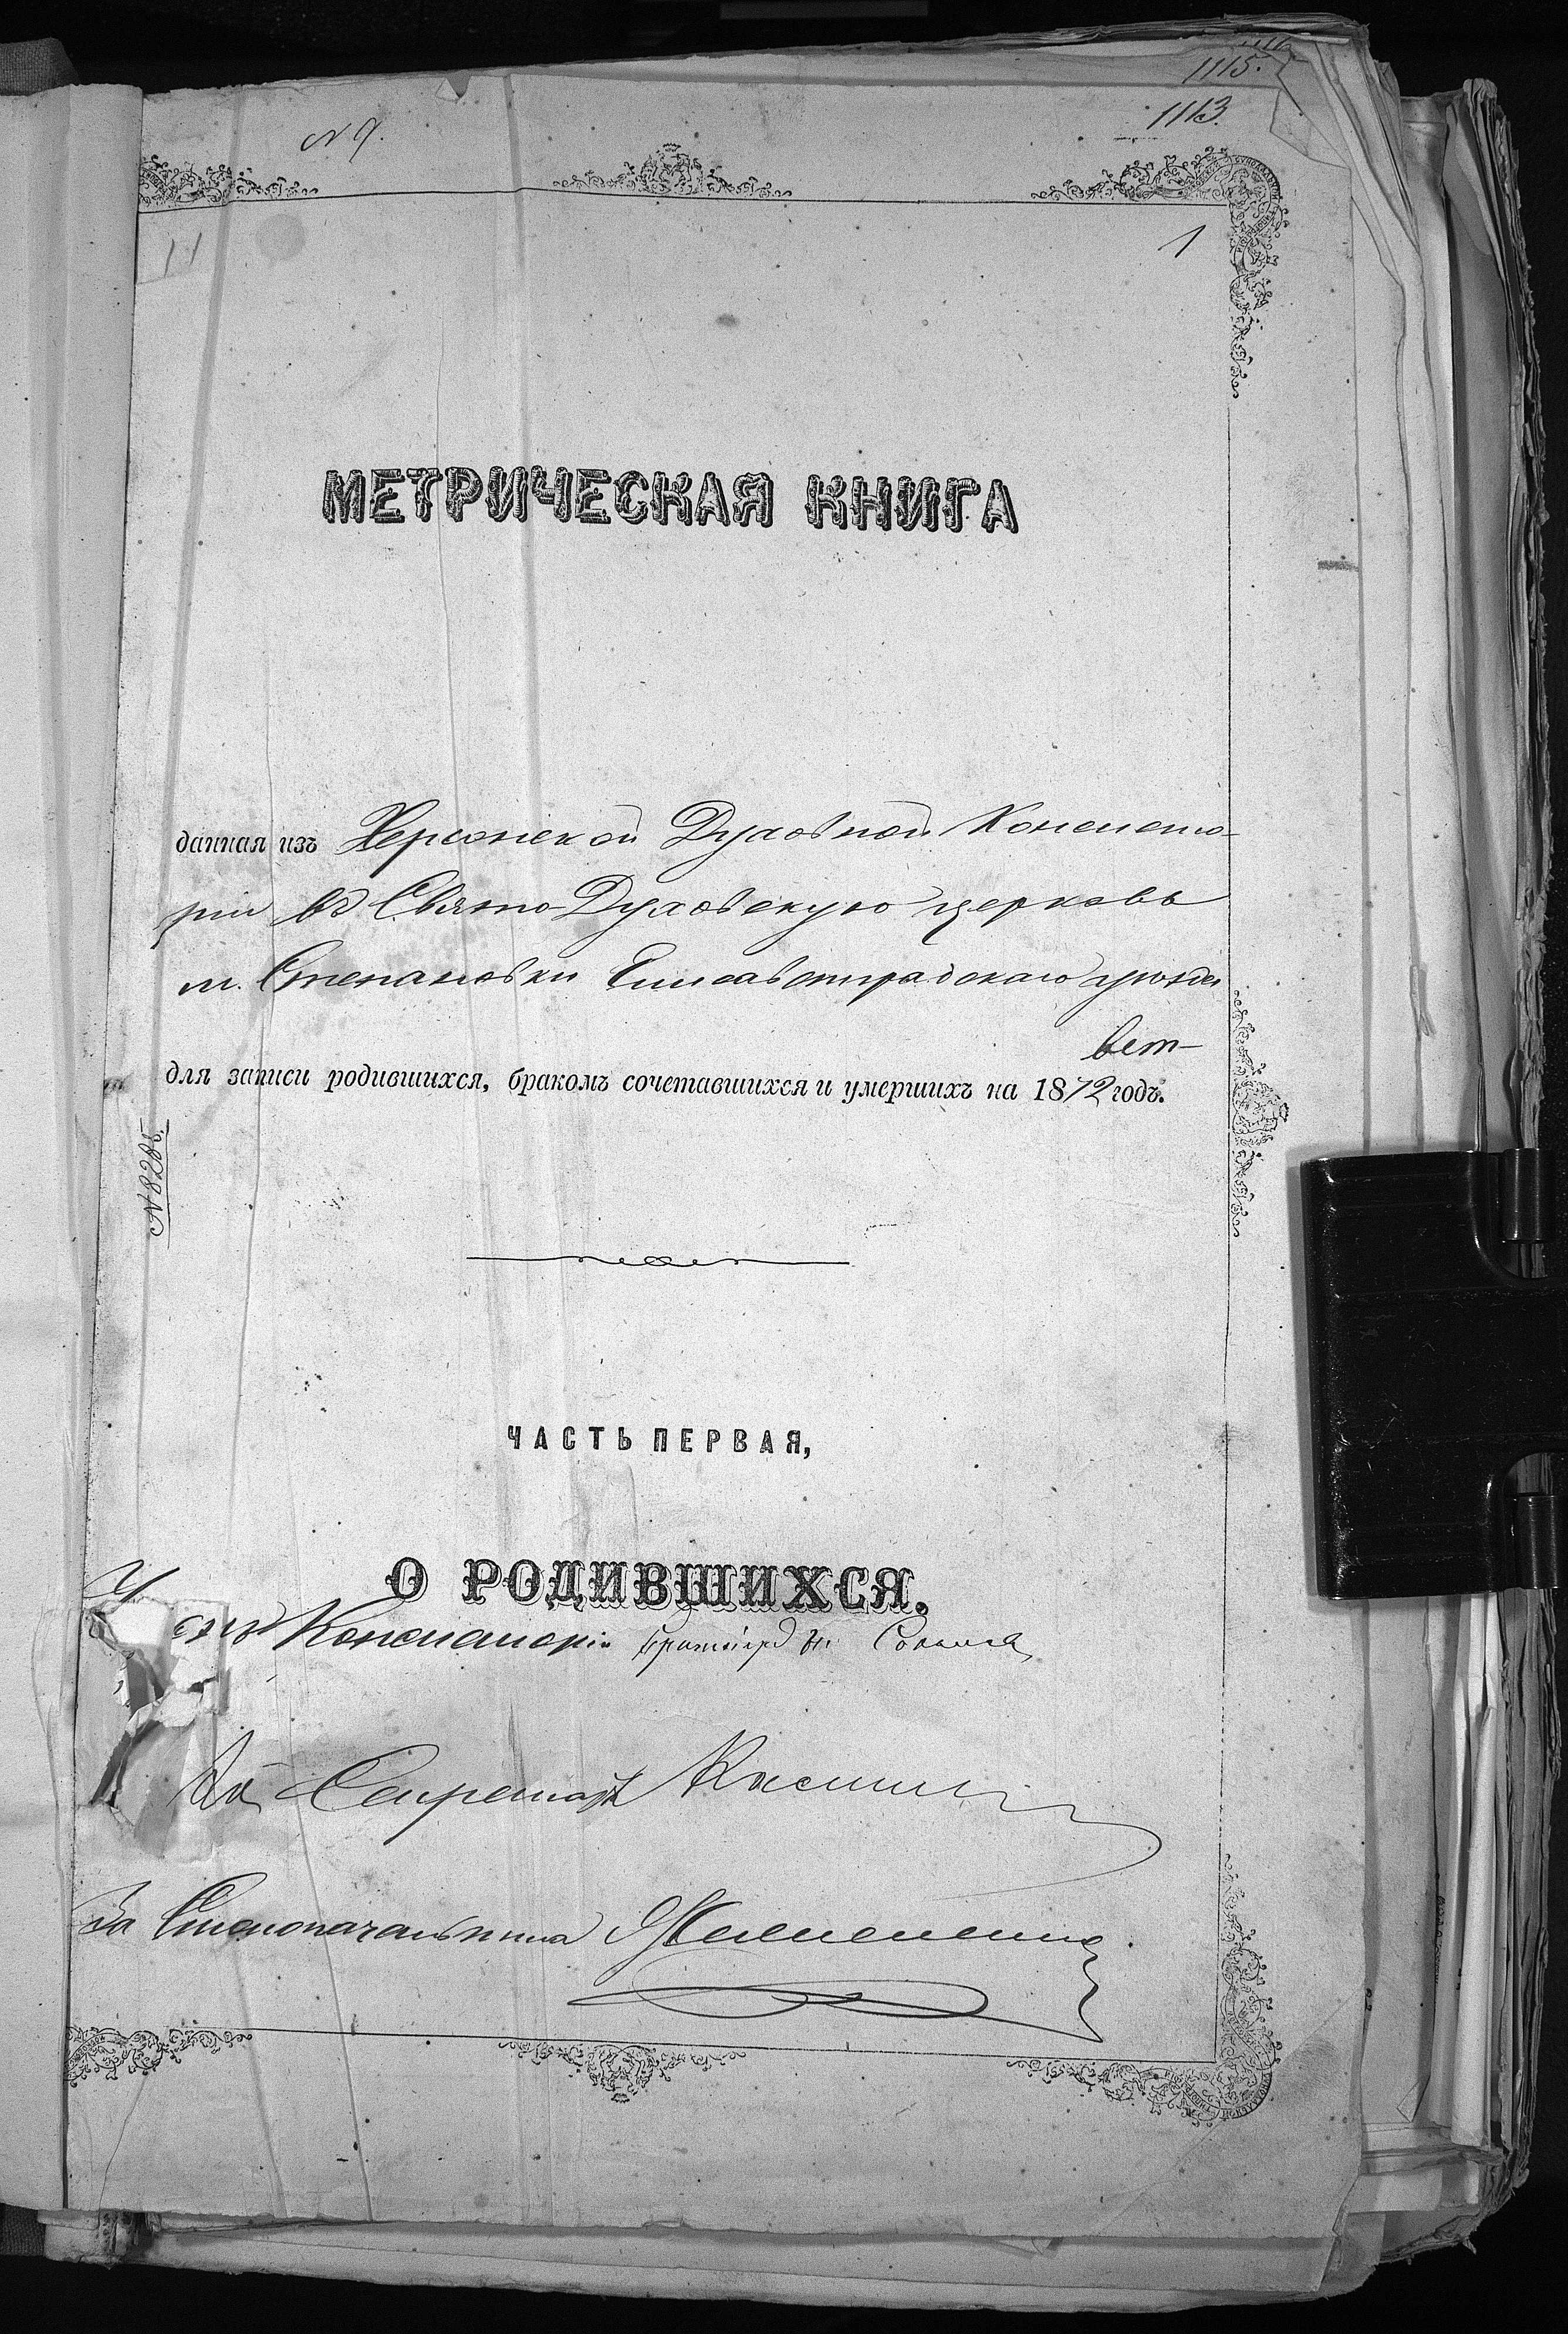 1115.
1113.
N 9.
1
МЕТРИЧЕСКАЯ КНИГА
данная изъ Херсонской Духовной Консисто-
ріи въ Свято-Духовскую церковь
м. Степановки Елисаветградскаго уѣзда
вет-
для записи родившихся, бракомъ сочетавшихся и умершихъ на 1872 годъ.
N 8285.
ЧАСТЬ ПЕРВАЯ,
О РОДИВШИХСЯ.
Консисторіи
Секретарь
За Столоначальника